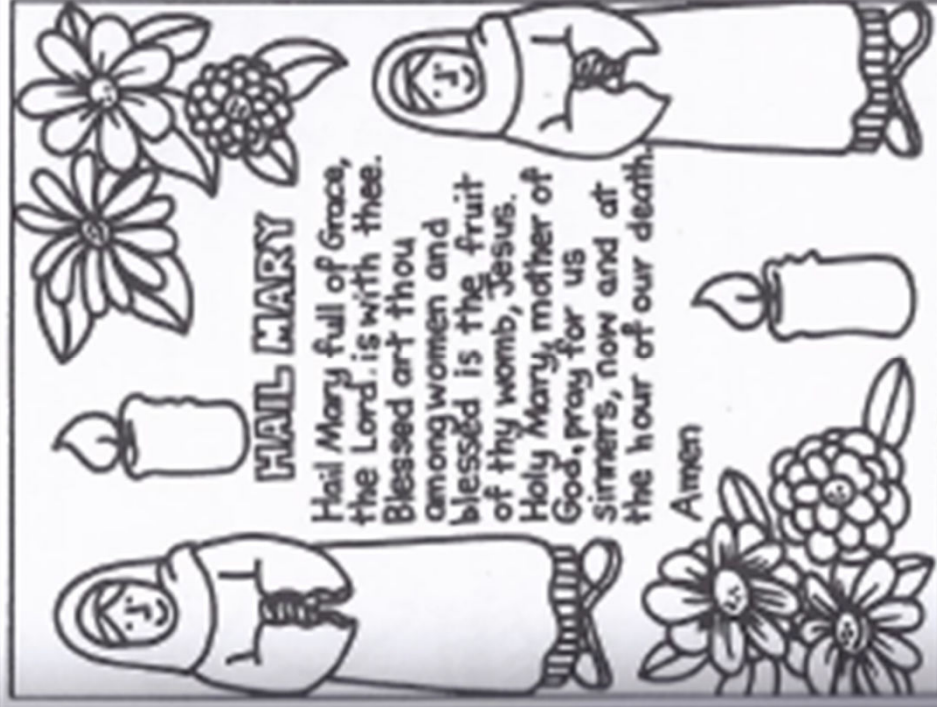 HAIL MARY
Hail Mary full of Grace,
the Lord is with thee.
Blessed art thou
among women and
blessed is the fruit
of thy womb, Jesus.
Holy Mary, mother of
God, pray for us
sinners, now and at
the hour of our death.
Amen